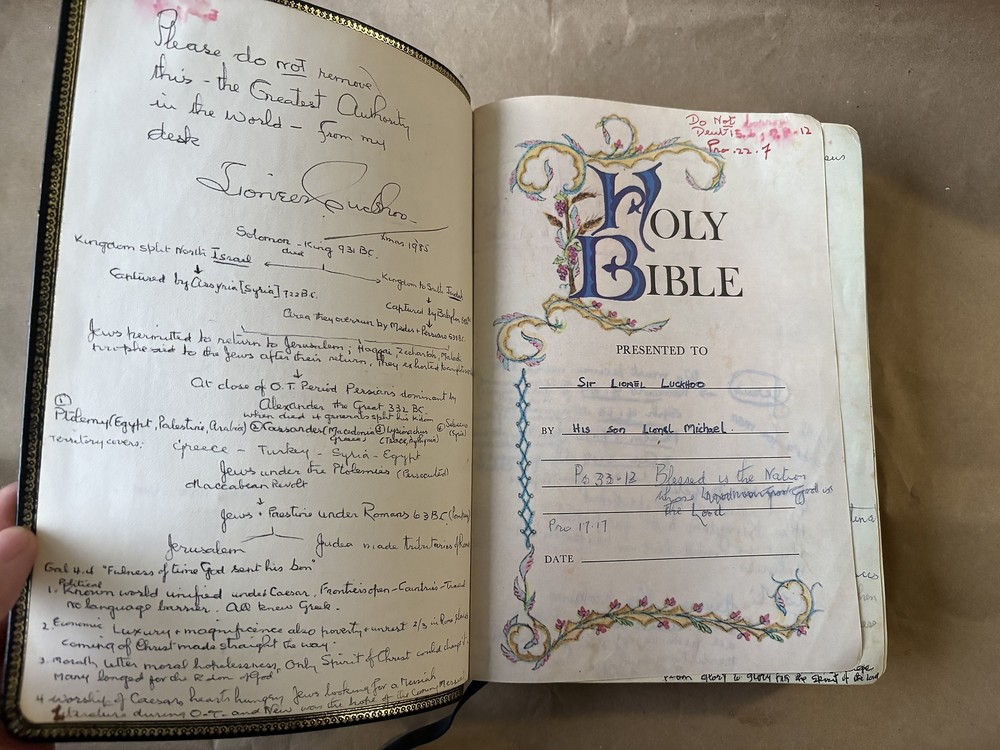 Please do not remove
this - the Greatest Authority
in the World - from my
desk
Lionel Luckhoo
Xmas 1985
Solomon - King 931 BC.
died
Kingdom split North Israel
Kingdom to South Judah
Captured by Assyria [Syria] 722 BC.
Captured by Babylon
Area they overrun by Medes + Persians 539 BC.
Jews permitted to return to Jerusalem; Haggai, Zechariah, Malachi
prophesied to the Jews after their return, they exhorted
At close of O.T. Period Persians dominant by
Alexander the Great 332 BC.
when died 4 generals split his Kdom
① Ptolemy (Egypt, Palestine, Arabia) ② Cassander (Macedonia Greece) ③ Lysimachus (Trace, Bithynia) ④ Seleucus (Syria)
Territory covers: Greece - Turkey - Syria - Egypt
Jews under the Ptolemies (Persecuted)
Maccabean Revolt
Jews + Palestine under Romans 63 BC. (Pompey)
Jerusalem Judea made tributaries of
Gal 4.4 "Fulness of time God sent his Son"
Political
1. Known world unified under Caesar, Frontiers open - Countries -
no language barrier. All knew Greek.
2. Economic Luxury + magnificence also poverty + unrest 2/3 in
coming of Christ made straight the way.
3. Morally utter moral hopelessness, Only Spirit of Christ could change it
Many longed for the
4. worship of Caesars hearts hungry Jews looking for a Messiah,
Literature during O.T. and New was the hope of the Coming
Do Not borrow
Deut 15.6, 28.12
Pro. 22.7
HOLY
BIBLE
PRESENTED TO
SIR LIONEL LUCKHOO
BY HIS SON LIONEL MICHAEL.
Ps 33-12 Blessed is the Nation
whose God is
the Lord
Pro 17.17
DATE
from glory to glory the Spirit of the Lord